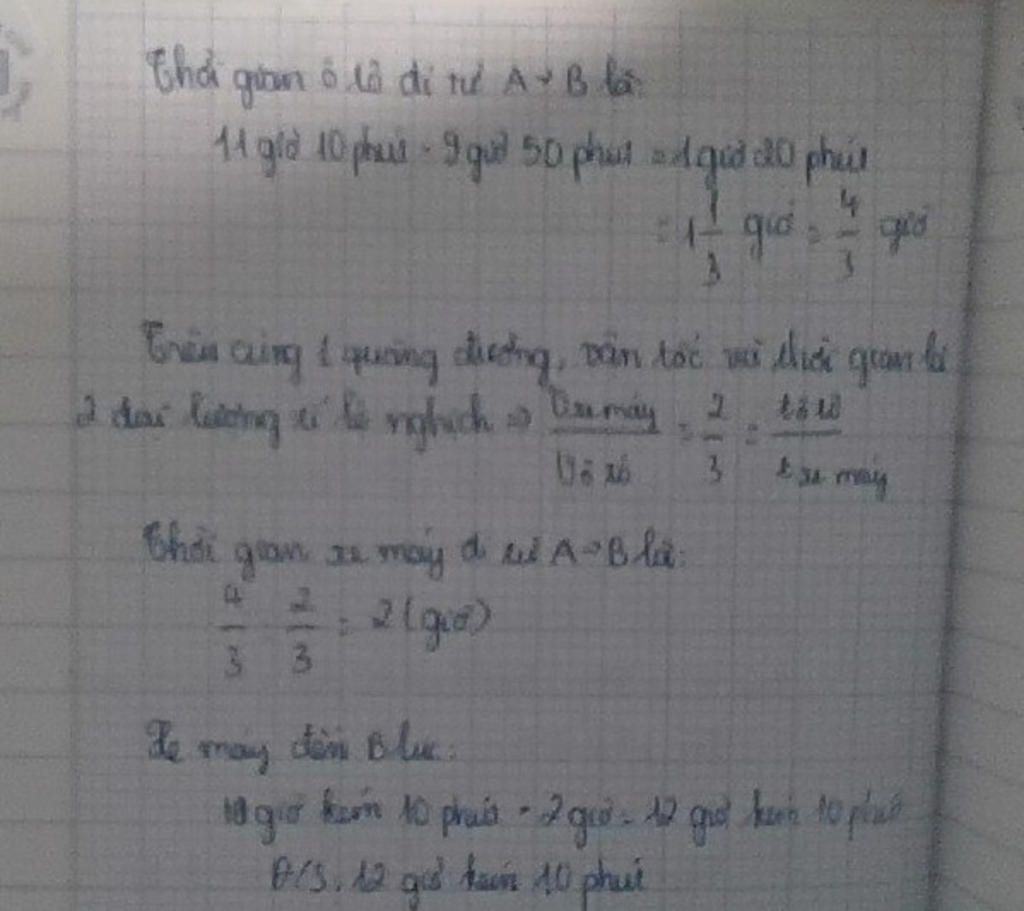 Thời gian ô tô đi từ A → B là:
11 giờ 10 phút - 9 giờ 50 phút = 1 giờ 20 phút
= 1 1/3 giờ = 4/3 giờ
Trên cùng 1 quãng đường, vận tốc và thời gian là
2 đại lượng tỉ lệ nghịch => V xe máy / V ô tô = 2/3 = t ô tô / t xe máy
Thời gian xe máy đi từ A → B là:
4/3 : 2/3 = 2 (giờ)
Xe máy đến B lúc:
10 giờ kém 10 phút + 2 giờ = 12 giờ kém 10 phút
Đ/S: 12 giờ kém 10 phút